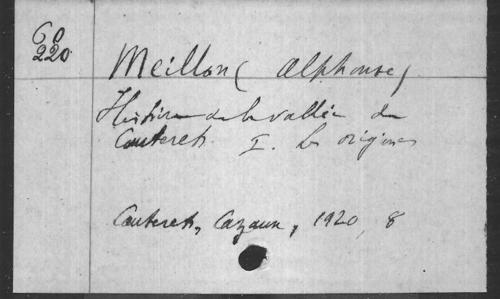 60
220
Meillon (Alphonse)
Histoire de la vallée de
Cauterets. I. les origines
Cauterets, Cazaux, 1920, 8